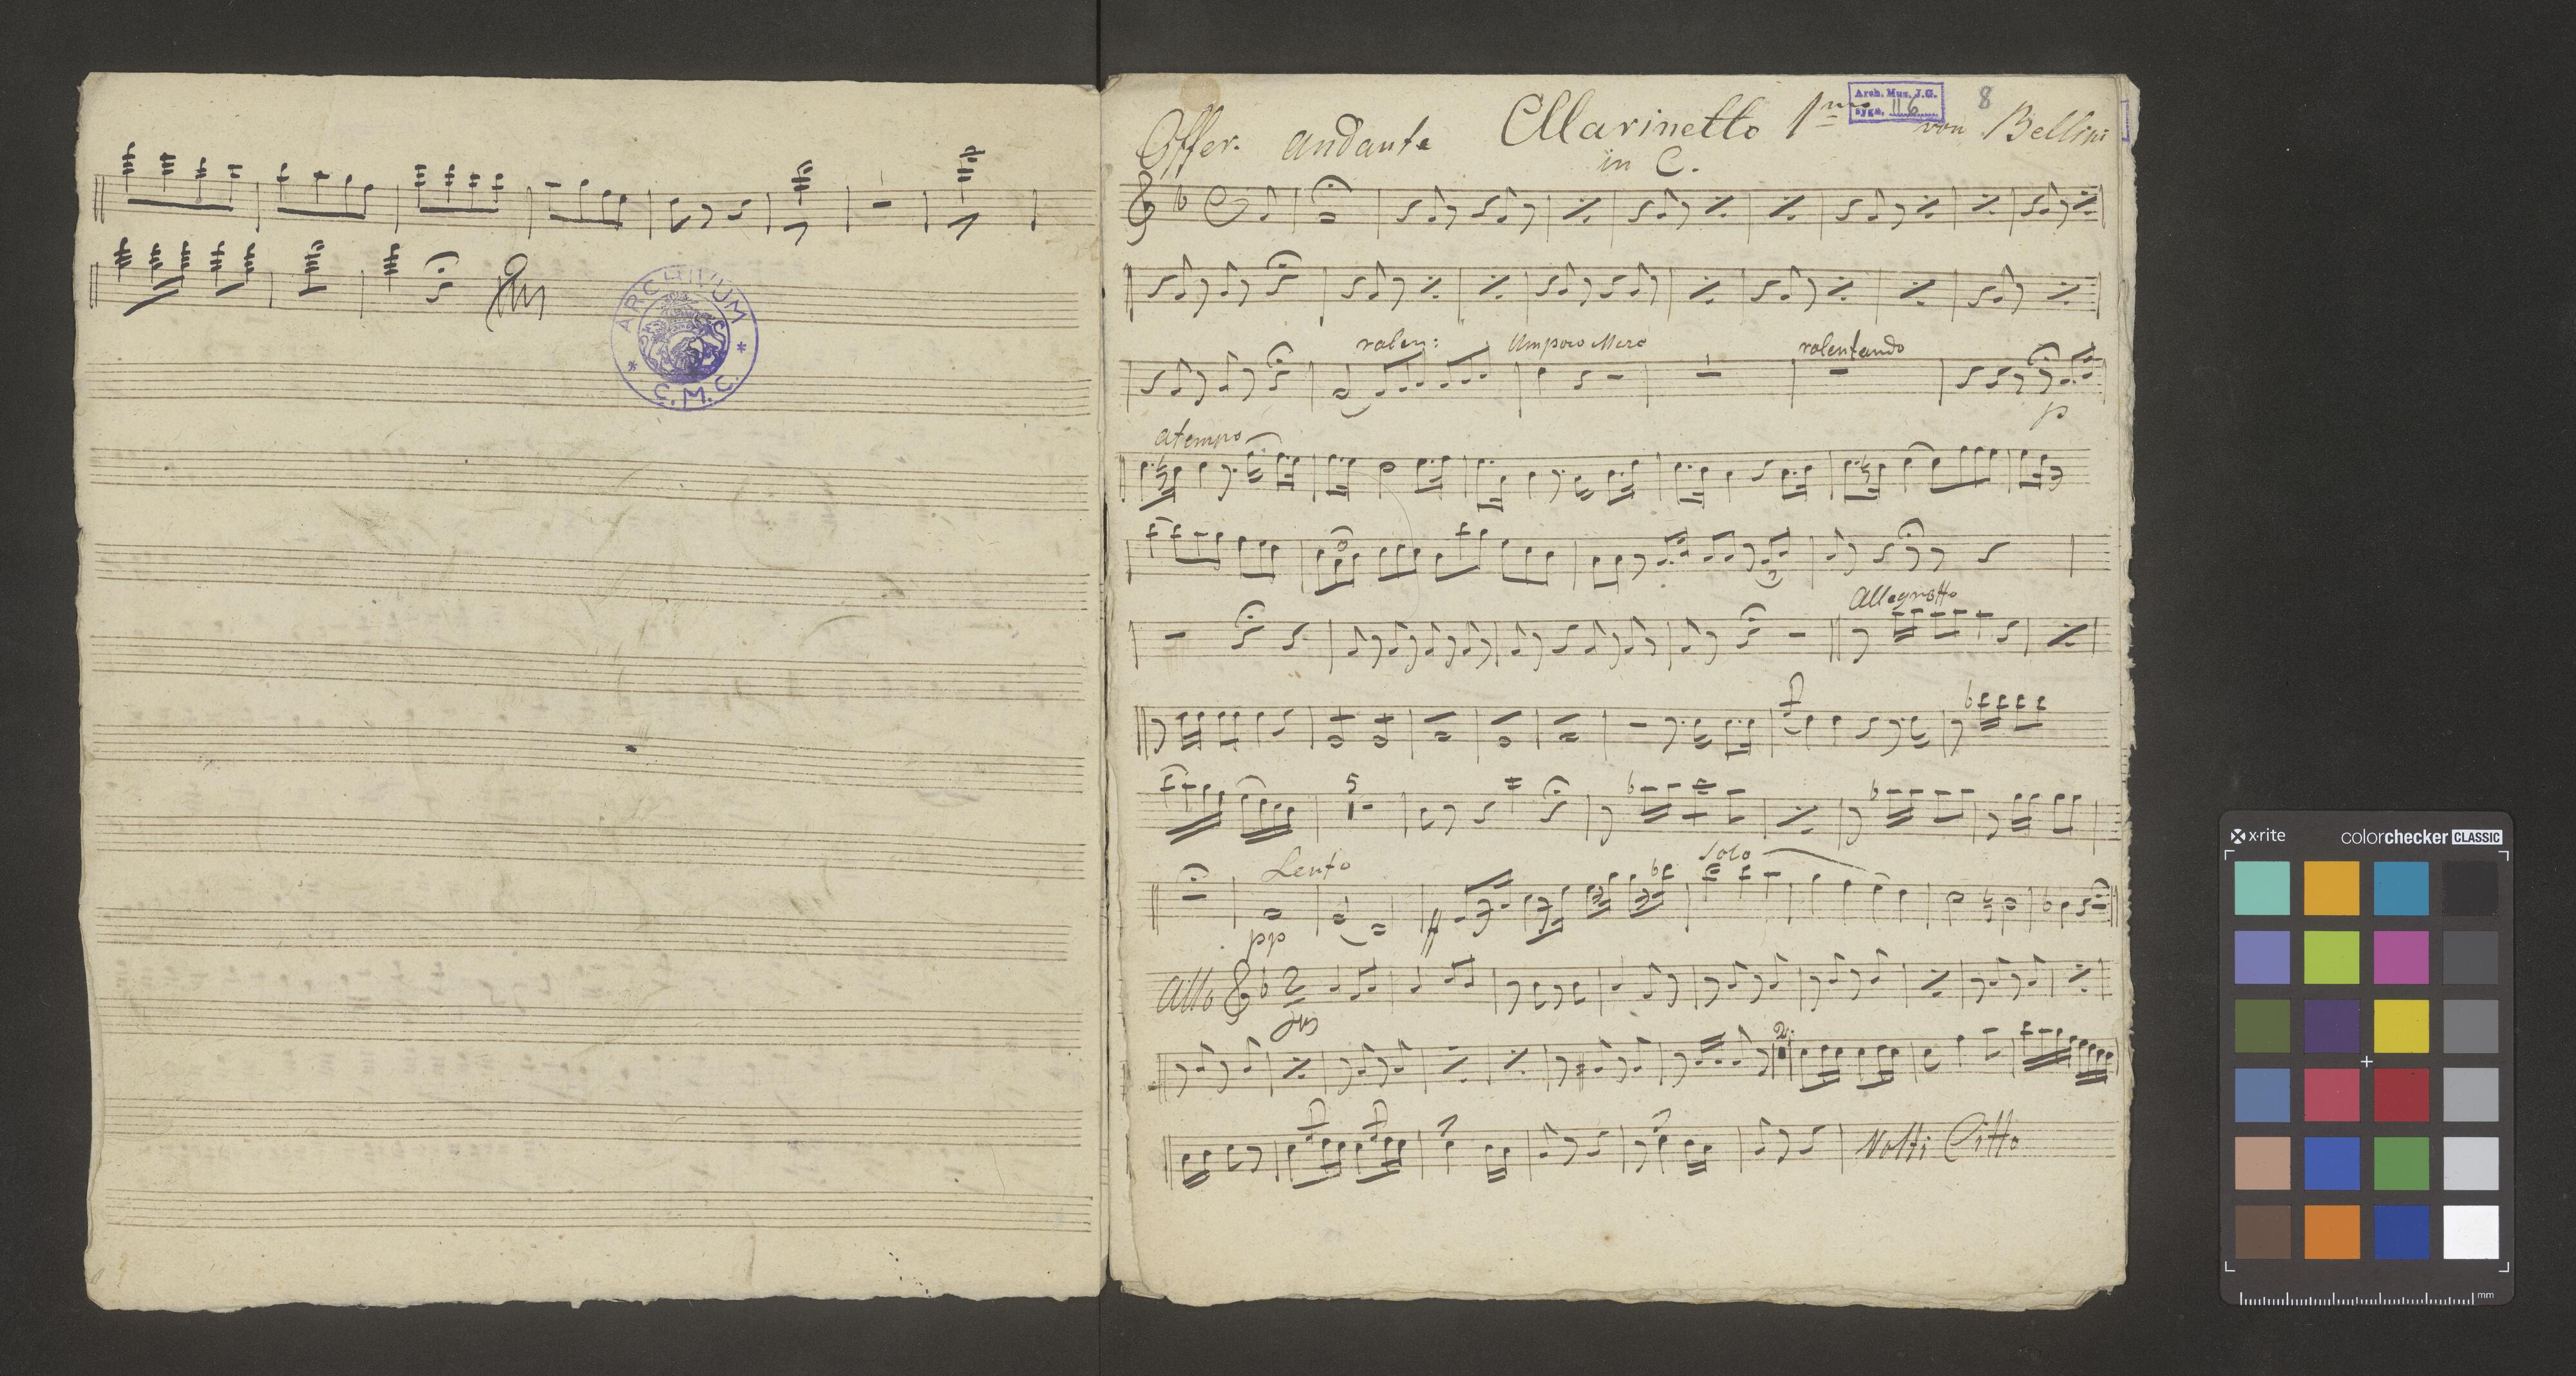 ARCHIVUM
* C.M.C. *
Arch. Muz. J.G.
sygn. 116
8
Offer. Andante Cllarinetto 1mo von Bellini
in C.
ralen:
Umpoco Mero
ralentando
p
atempo
3
Allegretto
5
Lento
Solo
pp
ff
Allo 2
2.
Volti Citto
x-rite
colorchecker CLASSIC
mm